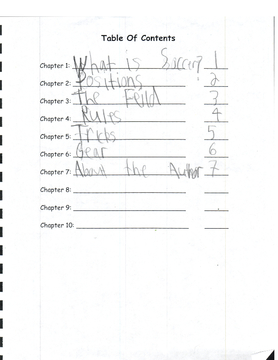 Table Of Contents
Chapter 1: What is Soccer? 1
Chapter 2: Positions 2
Chapter 3: The Feild 3
Chapter 4: Rules 4
Chapter 5: Tricks 5
Chapter 6: Gear 6
Chapter 7: About the Author 7
Chapter 8:
Chapter 9:
Chapter 10: